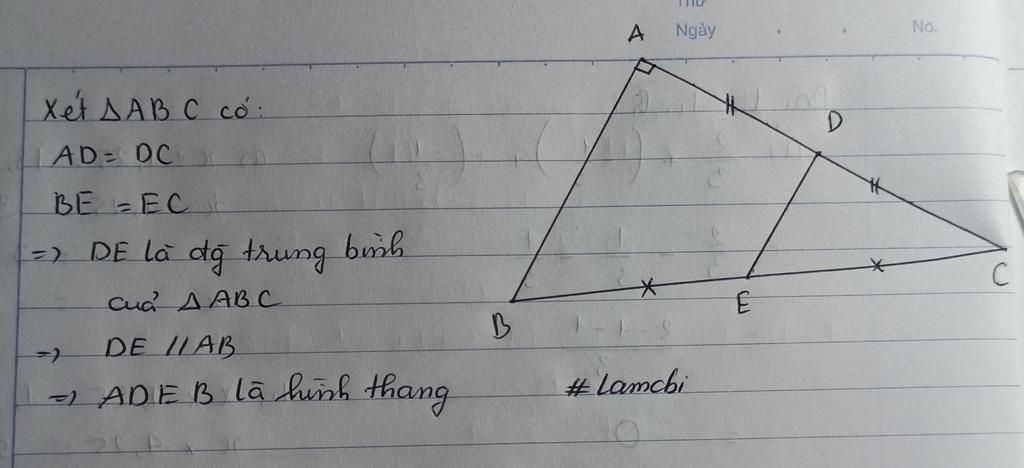 Thứ
Ngày . . No.
Xét △ABC có:
AD = DC
BE = EC
=> DE là đg trung bình
của △ABC
=> DE // AB
=> ADEB là hình thang
#Lamchi
A
D
B
E
C